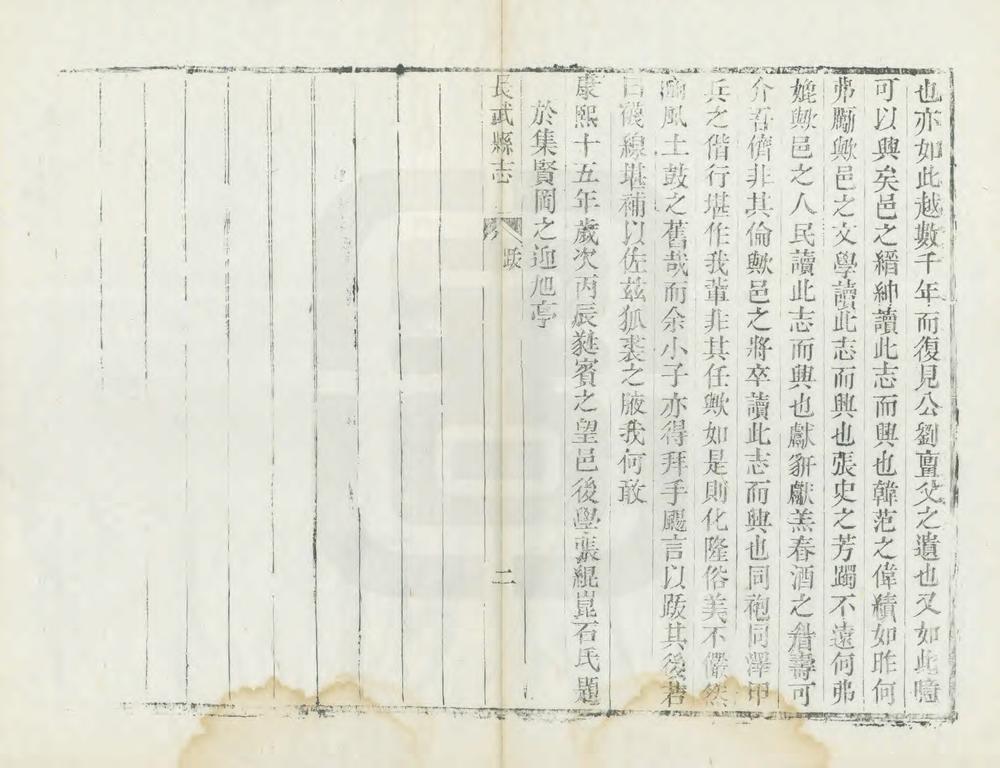 也亦如此越數千年而復見公劉亶父之遺也又如此噫
可以興矣邑之縉紳讀此志而興也韓范之偉績如昨何
弗勵歟邑之文學讀此志而興也張史之芳躅不遠何弗
媲歟邑之人民讀此志而興也獻豜獻羔春酒之眉壽可
介吾儕非其倫歟邑之將卒讀此志而興也同袍同澤甲
兵之偕行堪作我輩非其任歟如是則化隆俗美不儼然
豳風土鼓之舊哉而余小子亦得拜手颺言以跋其後若
曰襪線堪補以佐茲狐裘之腋我何敢
康熙十五年歲次丙辰蕤賓之望邑後學張綎崑石氏題
於集賢岡之迎旭亭
長武縣志 跋 二